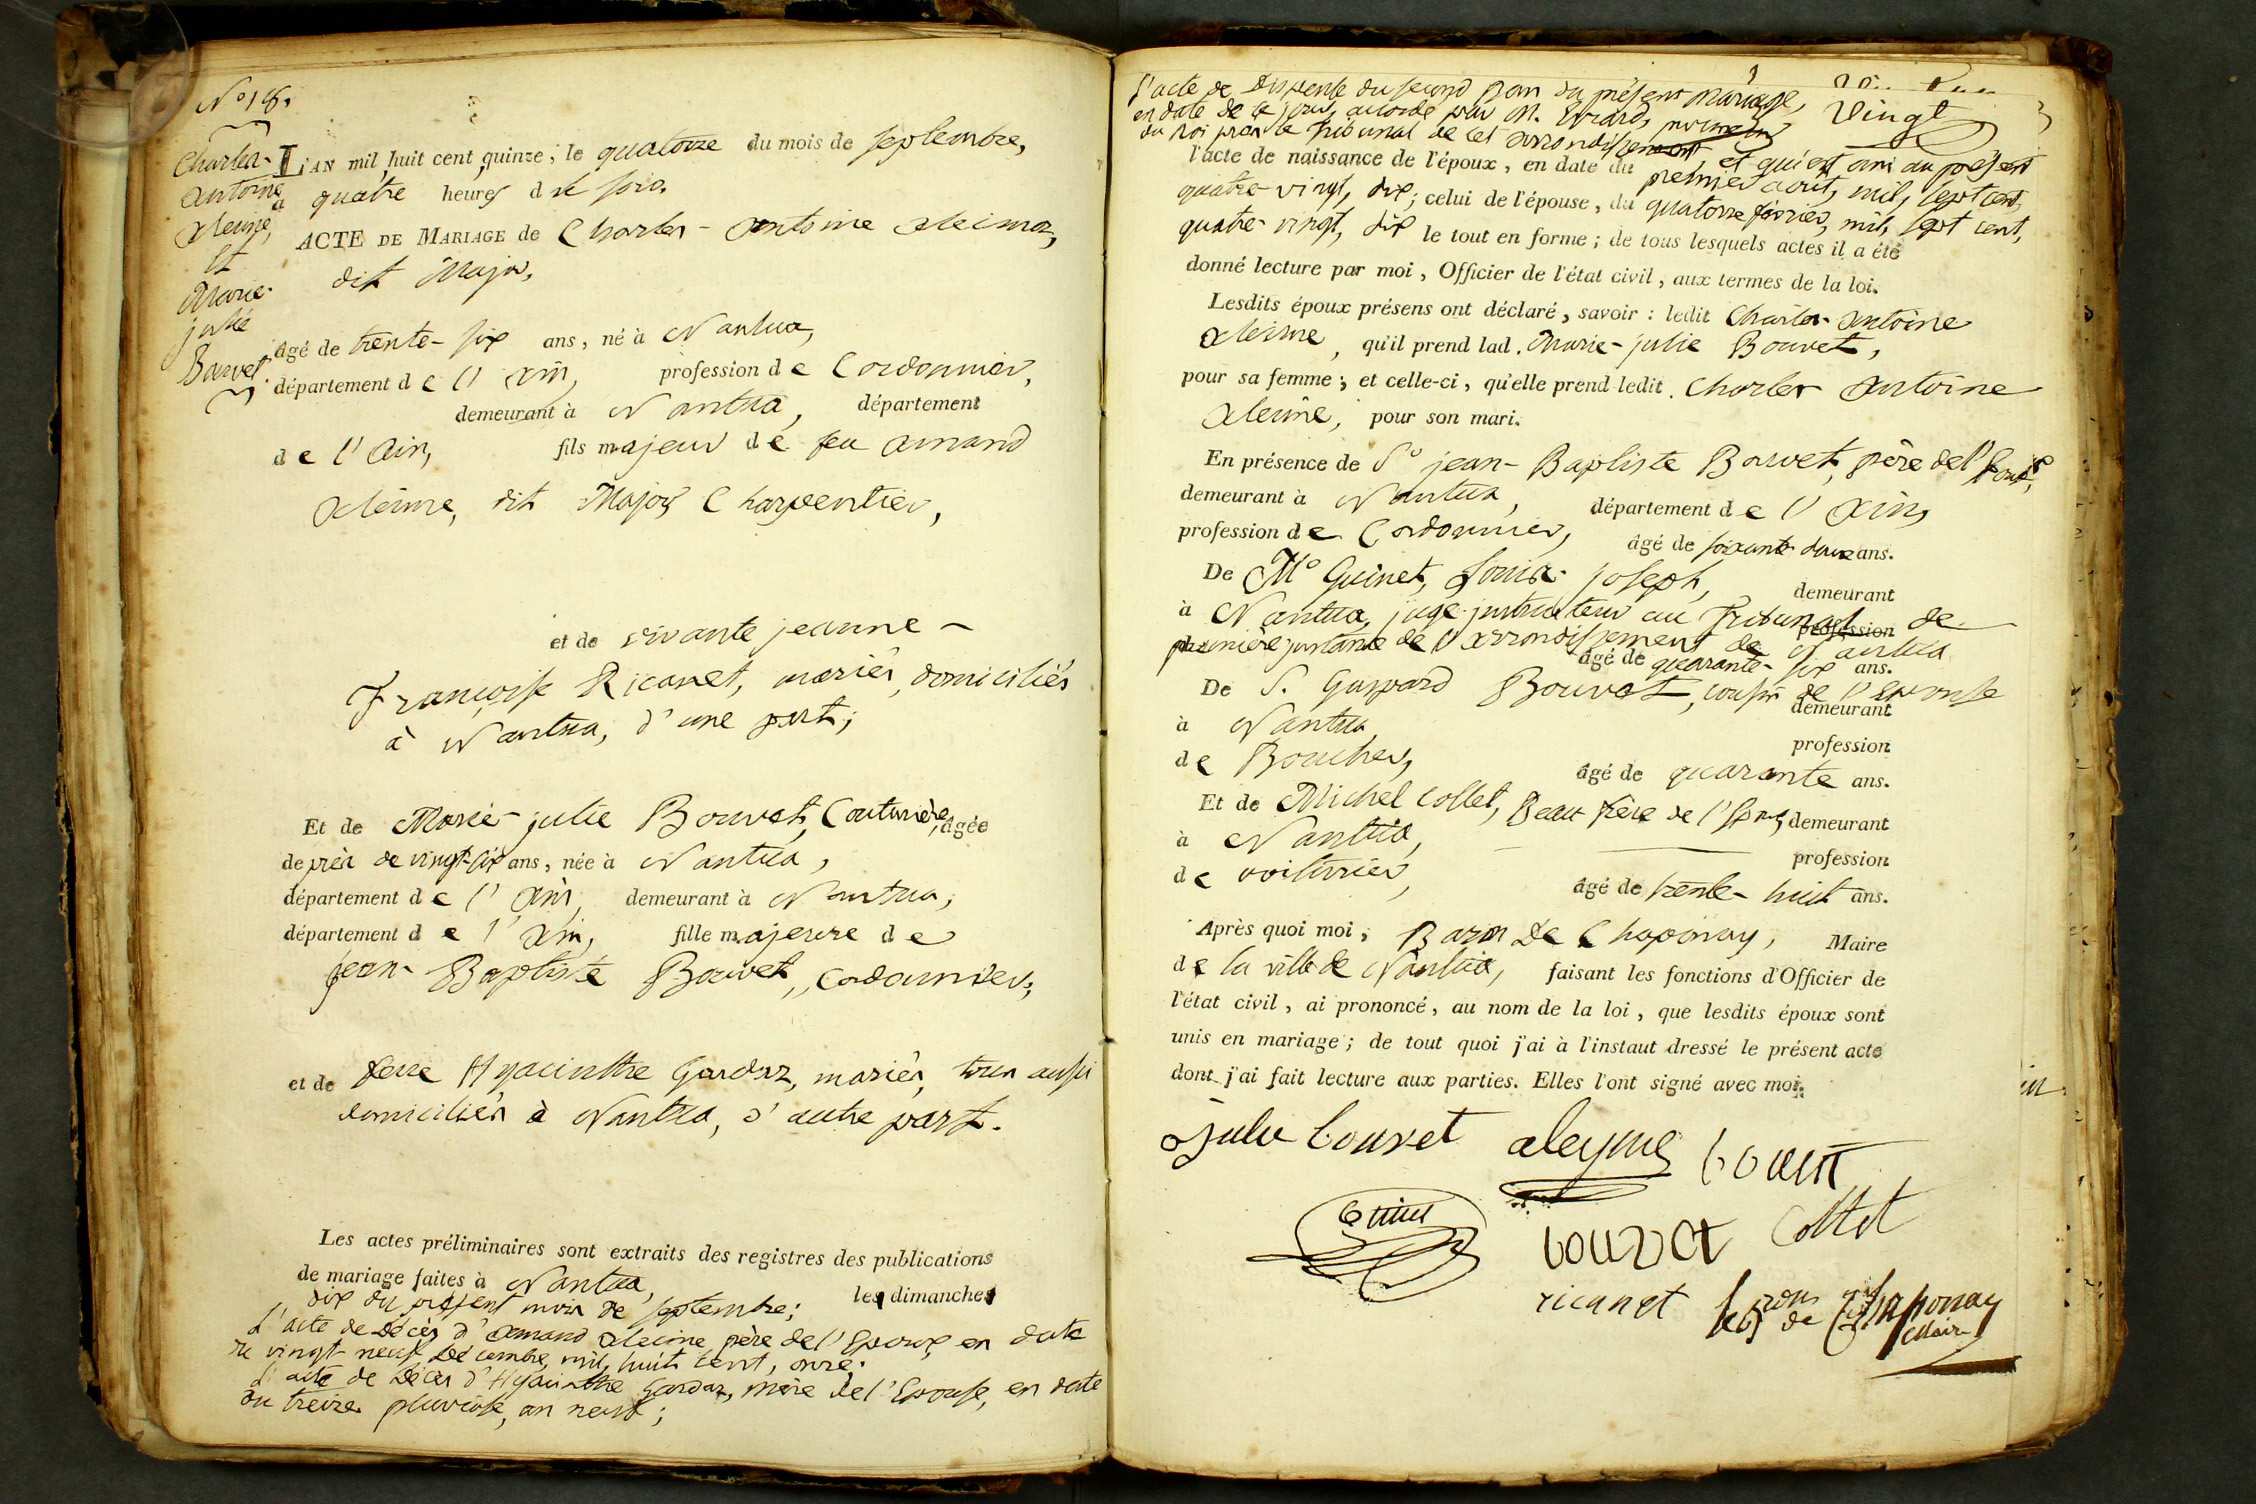 N° 18.
Charles-
Antoine
Aleine,
et
Marie-
julie
Bouvet.
L'AN mil huit cent quinze, le quatorze du mois de septembre,
à quatre heures du soir.
ACTE DE MARIAGE de Charles-Antoine Aleime,
dit Major,
âgé de trente-six ans, né à Nantua,
département de l'Ain, profession de Cordonnier,
demeurant à Nantua, département
de l'Ain, fils majeur de feu Amand
Aleime, dit Major, Charpentier,
et de vivante jeanne-
Françoise Ricanet, mariés, domiciliés
à Nantua, d'une part;
Et de Marie-julie Bouvet, Couturière, âgée
de près de vingt-six ans, née à Nantua,
département de l'Ain, demeurant à Nantua,
département de l'Ain, fille majeure de
jean-Baptiste Bouvet, Cordonnier,
et de Hyacinthe Gardaz, mariés, tous aussi
domiciliés à Nantua, d'autre part.
Les actes préliminaires sont extraits des registres des publications
de mariage faites à Nantua, les dimanches
dix du présent mois de septembre;
L'acte de Décès d'Amand Aleime père de l'Epoux, en date
du vingt neuf Décembre, mil, huit cent, onze.
L'acte de Décès d'Hyacinthe Gardaz, mère de l'Epouse, en date
du treize pluviose, an neuf;
Vingt
l'acte de Dispense du second Ban du présent mariage,
en date de ce jour, accordé par M. Evrard, procureur
du Roi près le Tribunal de cet arrondissement, et qui est au présent
l'acte de naissance de l'époux, en date du premier août, mil, sept cent,
quatre-vingt, dix; celui de l'épouse, du quatorze février, mil, sept cent,
quatre-vingt, dix le tout en forme; de tous lesquels actes il a été
donné lecture par moi, Officier de l'état civil, aux termes de la loi.
Lesdits époux présens ont déclaré, savoir: ledit Charles-Antoine
Aleime, qu'il prend lad. Marie-julie Bouvet,
pour sa femme; et celle-ci, qu'elle prend ledit Charles Antoine
Aleime, pour son mari.
En présence de Sr jean-Baptiste Bouvet, père de l'Epouse,
demeurant à Nantua, département de l'Ain,
profession de Cordonnier, âgé de soixante douze ans.
De Mr Guinet, Louis-joseph, demeurant
à Nantua, juge-instructeur au Tribunal de profession
première instance de l'arrondissement de Nantua
âgé de quarante-six ans.
De S. Gaspard Bouvet, cousin de l'Epouse
demeurant
à Nantua,
profession
de Boucher, âgé de quarante ans.
Et de Michel Collet, Beau frère de l'Epouse demeurant
à Nantua,
profession
de voiturier, âgé de trente-huit ans.
Après quoi moi, Baron De Chaponay, Maire
de la ville de Nantua, faisant les fonctions d'Officier de
l'état civil, ai prononcé, au nom de la loi, que lesdits époux sont
unis en mariage; de tout quoi j'ai à l'instaut dressé le présent acte
dont j'ai fait lecture aux parties. Elles l'ont signé avec moi.
Julie bouvet aleyme bouvet
Guinet bouvet Collet
ricanet le Bron de Chaponay
Maire